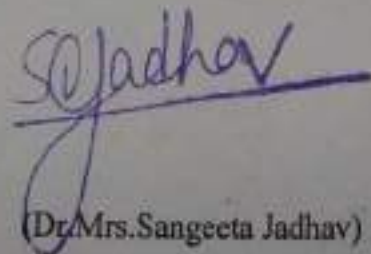 SCJadhav
(Dr.Mrs.Sangeeta Jadhav)